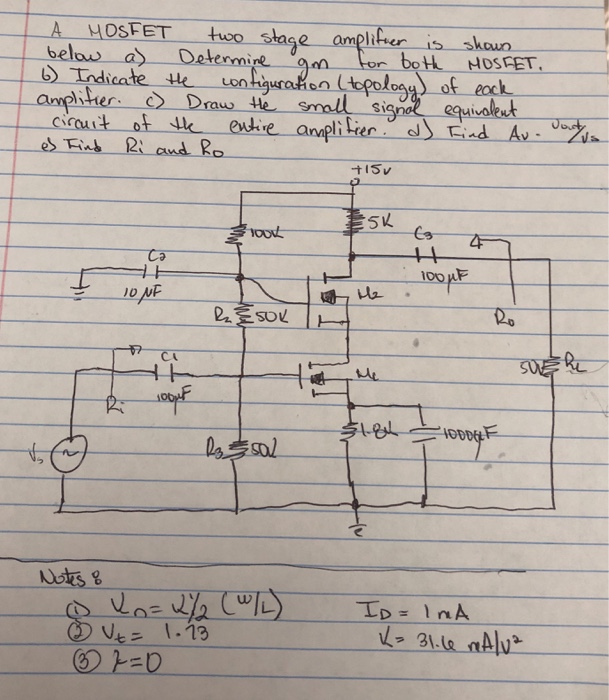 A MOSFET two stage amplifier is shown
below a) Determine gm for both MOSFET.
b) Indicate the configuration (topology) of each
amplifier. c) Draw the small signal equivalent
circuit of the entire amplifier. d) Find Av = Vout/Vs
e) Find Ri and Ro
+15v
100K
5K
C3
100µF
C2
10µF
M2
Ro
R2
50K
C1
100µF
Ri
M1
RL
Vs
R3
1.8k
1000µF
Notes:
① Kn = K/2 (W/L)
② Vt = 1.73
③ λ=0
ID = 1mA
K = 31.6 mA/V²